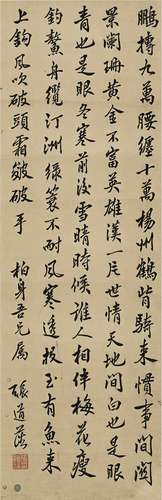 鵬搏九萬腰纏十萬楊州鶴背騎來慣事間關
景闌珊黃金不富英雄漢一片世情天地間白也是眼
青也是眼冬寒前後雪晴時候誰人相伴梅花瘦
釣鰲舟纜汀洲綠蓑不耐風寒透投至有魚來
上鉤風吹破頭霜皴破手
柏身吾兄屬
張道藩